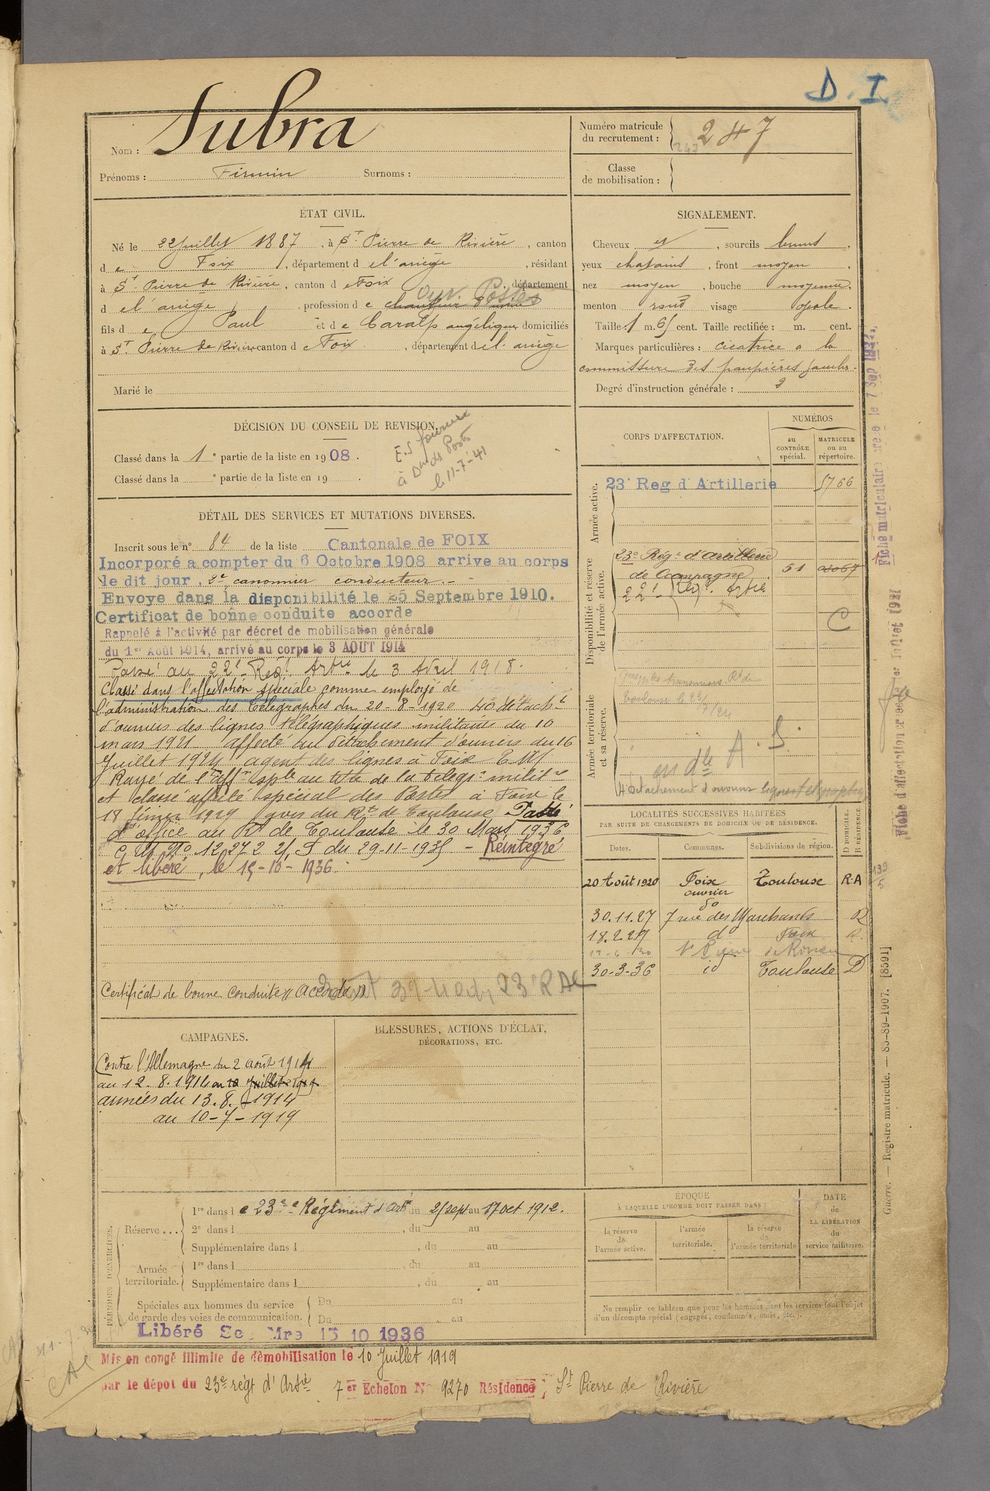 D. I.
Nom : Subra
Prénoms : Firmin Surnoms :
Numéro matricule du recrutement : 247
Classe de mobilisation :
ÉTAT CIVIL.
Né le 22 Juillet 1887, à St Pierre de Rivière, canton
d e Foix, département d e l'ariège, résidant
à St Pierre de Rivière, canton d e Foix, département
d e l'ariège, profession d e
fils d e Paul et d e Caralp angélique domiciliés
à St Pierre de Rivière canton d e Foix, département d e l'ariège
Marié le
SIGNALEMENT.
Cheveux et, sourcils bruns.
yeux chatains, front moyen
nez moyen, bouche moyenne.
menton rond visage ovale.
Taille 1 m. 65 cent. Taille rectifiée : m. cent.
Marques particulières : cicatrice à la
commissure des paupières gauches.
Degré d'instruction générale : 3
DÉCISION DU CONSEIL DE REVISION.
Classé dans la 1e partie de la liste en 1908.
Classé dans la e partie de la liste en 19 .
le 11-7-41
DÉTAIL DES SERVICES ET MUTATIONS DIVERSES.
Inscrit sous le n° 84 de la liste Cantonale de FOIX
Incorporé a compter du 6 Octobre 1908 arrive au corps
le dit jour, 2e canonnier conducteur.-
Envoye dans la disponibilité le 25 Septembre 1910.
Certificat de bonne conduite accorde
Rappelé à l'activité par décret de mobilisation générale
du 1er Août 1914, arrivé au corps le 3 AOUT 1914
Passé au 22e Regt Artie le 3 Avril 1918.
Classé dans l'affectation spéciale comme employé de
l'administration des Télégraphes du 20-8-1920
d'ouvriers des lignes télégraphiques militaire du 10
mars 1921 affecté au détachement d'ouvriers du 16
Juillet 1924 agent des lignes à Foix
Rayé de l'affon Sple au titre de la télégie milit re
et classé affecté spécial des Postes à Foix le
18 février 1929 Passé
d'office au Rt de Toulouse le 30 Mars 1936
du 29-11-1935 - Réintégré
et libéré, le 15-10-1936.
Certificat de bonne conduite "Accordé"
CORPS D'AFFECTATION.
NUMÉROS
au contrôle spécial.
matricule ou au répertoire.
Armée active.
23e Reg d'Artillerie 5766
Disponibilité et réserve de l'armée active.
23e Regt d'Artillerie
de Campagne 51
22e Regt Artie
C
Armée territoriale et sa réserve.
Détachement d'ouvriers lignes télégraphiques
LOCALITÉS SUCCESSIVES HABITÉES
PAR SUITE DE CHANGEMENTS DE DOMICILE OU DE RÉSIDENCE.
Dates. Communes. Subdivisions de région. D DOMICILE. R RÉSIDENCE.
20 Août 1920 Foix Toulouse R.A
ouvrier
30.11.27 7 rue des Marchands R
18.2.29 do Foix R.
St Pierre de Rivière
30-3-36 id Toulouse D
CAMPAGNES.
Contre l'Allemagne du 2 août 1914
au 12.8.1914 au 10 Juillet 1919
armées du 13.8.-1914
au 10-7-1919
BLESSURES, ACTIONS D'ÉCLAT,
DÉCORATIONS, ETC.
PÉRIODES D'EXERCICES.
Réserve... 1re dans l e 23e Régiment d'Artie du 25 sept au 17 oct 1912.
2e dans l , du au
Supplémentaire dans l , du au
Armée territoriale. 1re dans l , du au
Supplémentaire dans l , du au
Spéciales aux hommes du service de garde des voies de communication. Du au
Du au
Libéré Se Mre 15 10 1936
ÉPOQUE
À LAQUELLE L'HOMME DOIT PASSER DANS :
la réserve de l'armée active.
l'armée territoriale.
la réserve de l'armée territoriale
DATE de LA LIBÉRATION du service militaire.
Ne remplir ce tableau que pour les hommes dont les services font l'objet
d'un décompte spécial (engagés, condamnés, omis, etc.
Mis en congé illimité de démobilisation le 10 Juillet 1919
par le dépôt du 23e régt d'Artie 7er Echelon N° 9270 Résidence : St Pierre de Rivière
Guerre. — Registre matricule. — 85-89-1907. [8591]